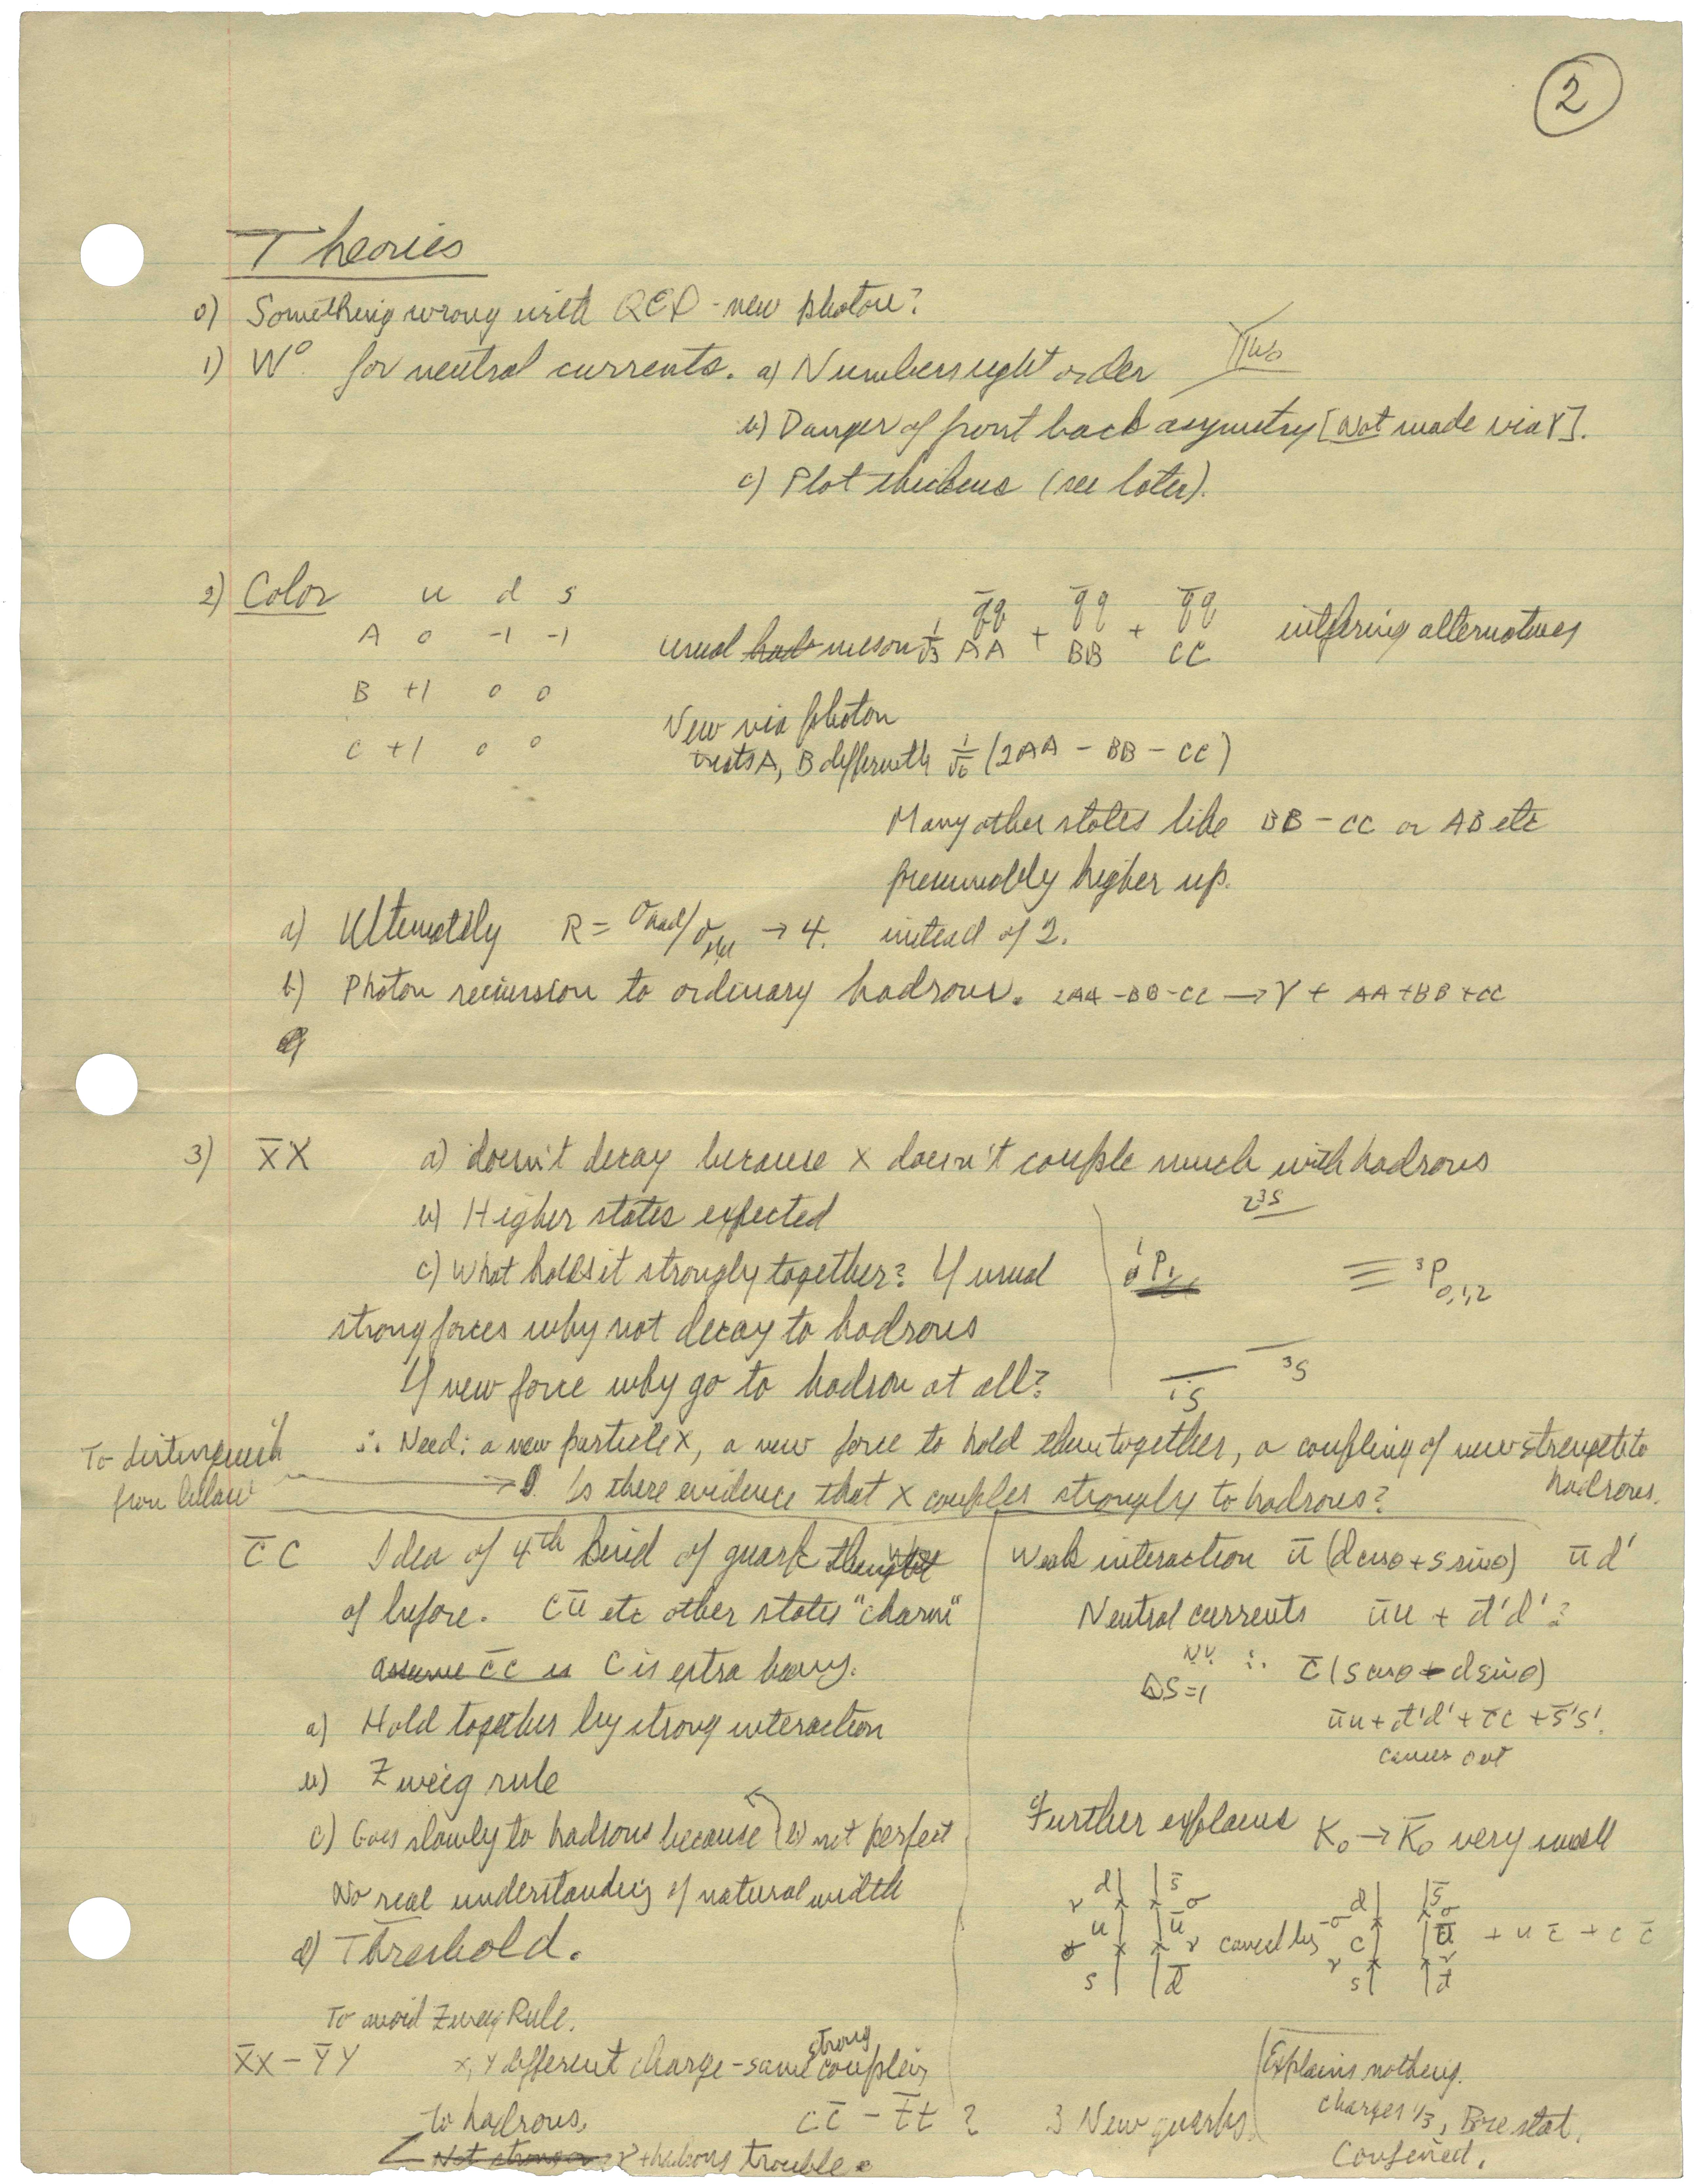 2
Theories
0) Something wrong with QED - new photon?
1) W⁰ for neutral currents. a) Numbers right order
b) Danger of front back asymetry [Not made via γ].
c) Plot thickens (see later).
2) Color u d s
A 0 -1 -1
B +1 0 0
C +1 0 0
usual meson 1/√3 q̄q AA + q̄q BB + q̄q CC interfering alternatives
New via photon
treats A, B differently 1/√6 (2AA - BB - CC)
Many other states like BB - CC or AB etc
presumably higher up.
a) Ultimately R = σhad/σμμ → 4. instead of 2.
b) Photon to ordinary hadrons. 2AA - BB - CC → γ + AA + BB + CC
3) X̄X a) doesn't decay because x doesn't couple much with hadrons
b) Higher states expected
2³S
c) What holds it strongly together? If usual
¹P₁ ³P₀,₁,₂
strong forces why not decay to hadrons
If new force why go to hadron at all?
¹S ³S
∴ Need: a new particle x, a new force to hold them together, a coupling of new strength to hadrons.
To distinguish from below → Is there evidence that x couples strongly to hadrons?
C̄C Idea of 4th kind of quark
of before. cū etc other states "charm"
assume c̄c is C is extra heavy.
a) Hold together by strong interaction
b) Zweig rule
c) Goes slowly to hadrons because b) not perfect
No real understanding of natural width
d) Threshold.
Weak interaction ū (d cosθ + s sinθ) ūd'
Neutral currents ūu + d̄'d'?
ΔS=1 ∴ c̄ (s cosθ - d sinθ)
ūu + d̄'d' + c̄c + s̄'s'.
comes out
Further explains K₀ → K̄₀ very small
d s̄ d s̄
u ū cancel by c ū + u c̄ + c c̄
s d̄ s d̄
To avoid Zweig Rule.
X̄X - ȲY x, y different charge - same strong coupling
to hadrons. cc̄ - t̄t ? 3 New quarks
Not γ + hadrons trouble
Explains nothing.
charges 1/3, Bose stat.
Confined.